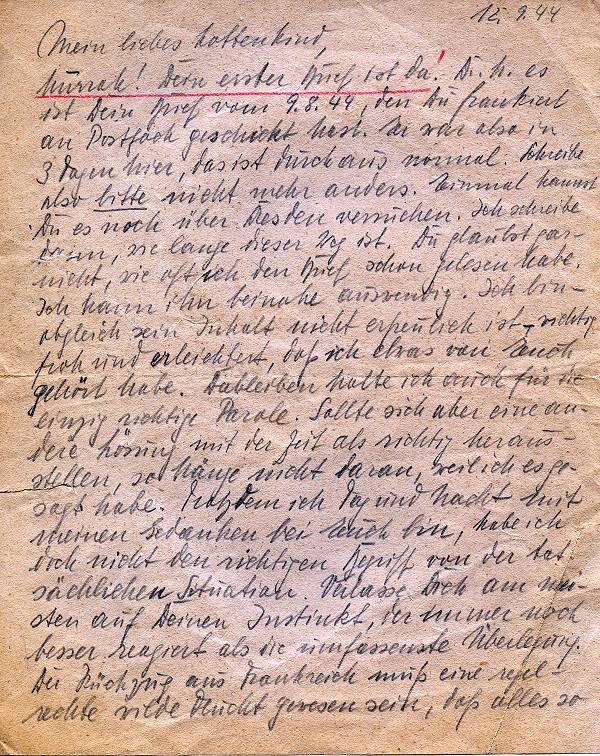 12.9.44
Mein liebes Lottenkind,
Hurrah! Dein erster Brief ist da! D.h. es
ist Dein Brief vom 9.8.44, den Du frankiert
an Postfach geschickt hast. Er war also in
3 Tagen hier, das ist durchaus normal. Schreibe
also bitte nicht mehr anders. Einmal kannst
Du es noch über Dresden versuchen. Ich schreibe
dann, wie lange dieser Weg ist. Du glaubst gar-
nicht, wie oft ich den Brief schon gelesen habe.
Ich kann ihn beinahe auswendig. Ich bin-
obgleich sein Inhalt nicht erfreulich ist - richtig
froh und erleichtert, daß ich etwas von Euch
gehört habe. Dableiben halte ich auch für die
einzig richtige Parole. Sollte sich aber eine an-
dere Lösung mit der Zeit als richtig heraus-
stellen, so hänge nicht daran, weil ich es ge-
sagt habe. Trotzdem ich Tag und Nacht mit
meinen Gedanken bei Euch bin, habe ich
doch nicht den richtigen Begriff von der tat-
sächlichen Situation. Verlasse Dich am mei-
sten auf Deinen Instinkt, der immer noch
besser reagiert als die umfassenste Überlegung.
Der Rückzug aus Frankreich muß eine regel-
rechte wilde Flucht gewesen sein, daß alles so